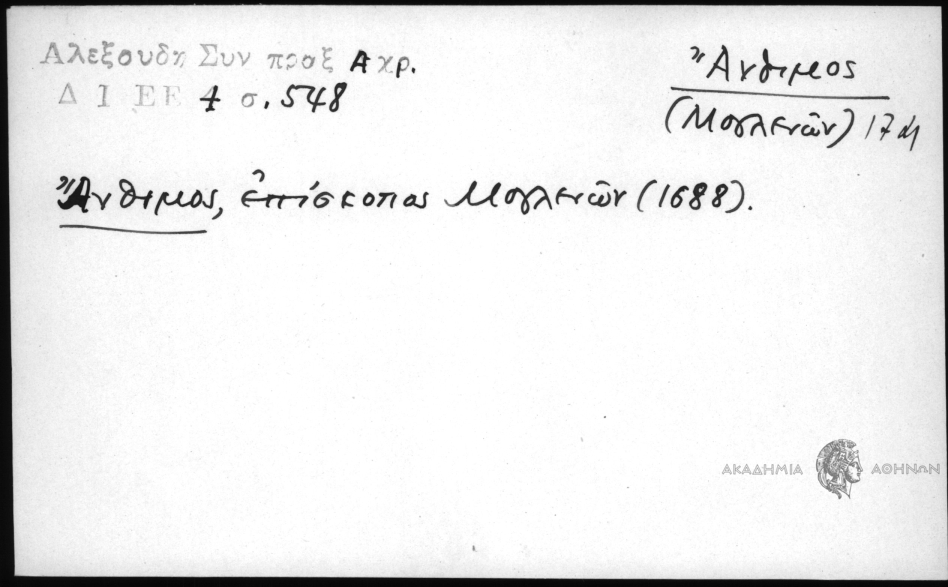 Αλεξουδη Συν πραξ Α χρ.
Δ Ι ΕΕ 4 σ. 548
Ἄνθιμος
(Μογλενῶν) 17
Ἄνθιμος, ἐπίσκοπος Μογλενῶν (1688).
ΑΚΑΔΗΜΙΑ ΑΘΗΝΩΝ